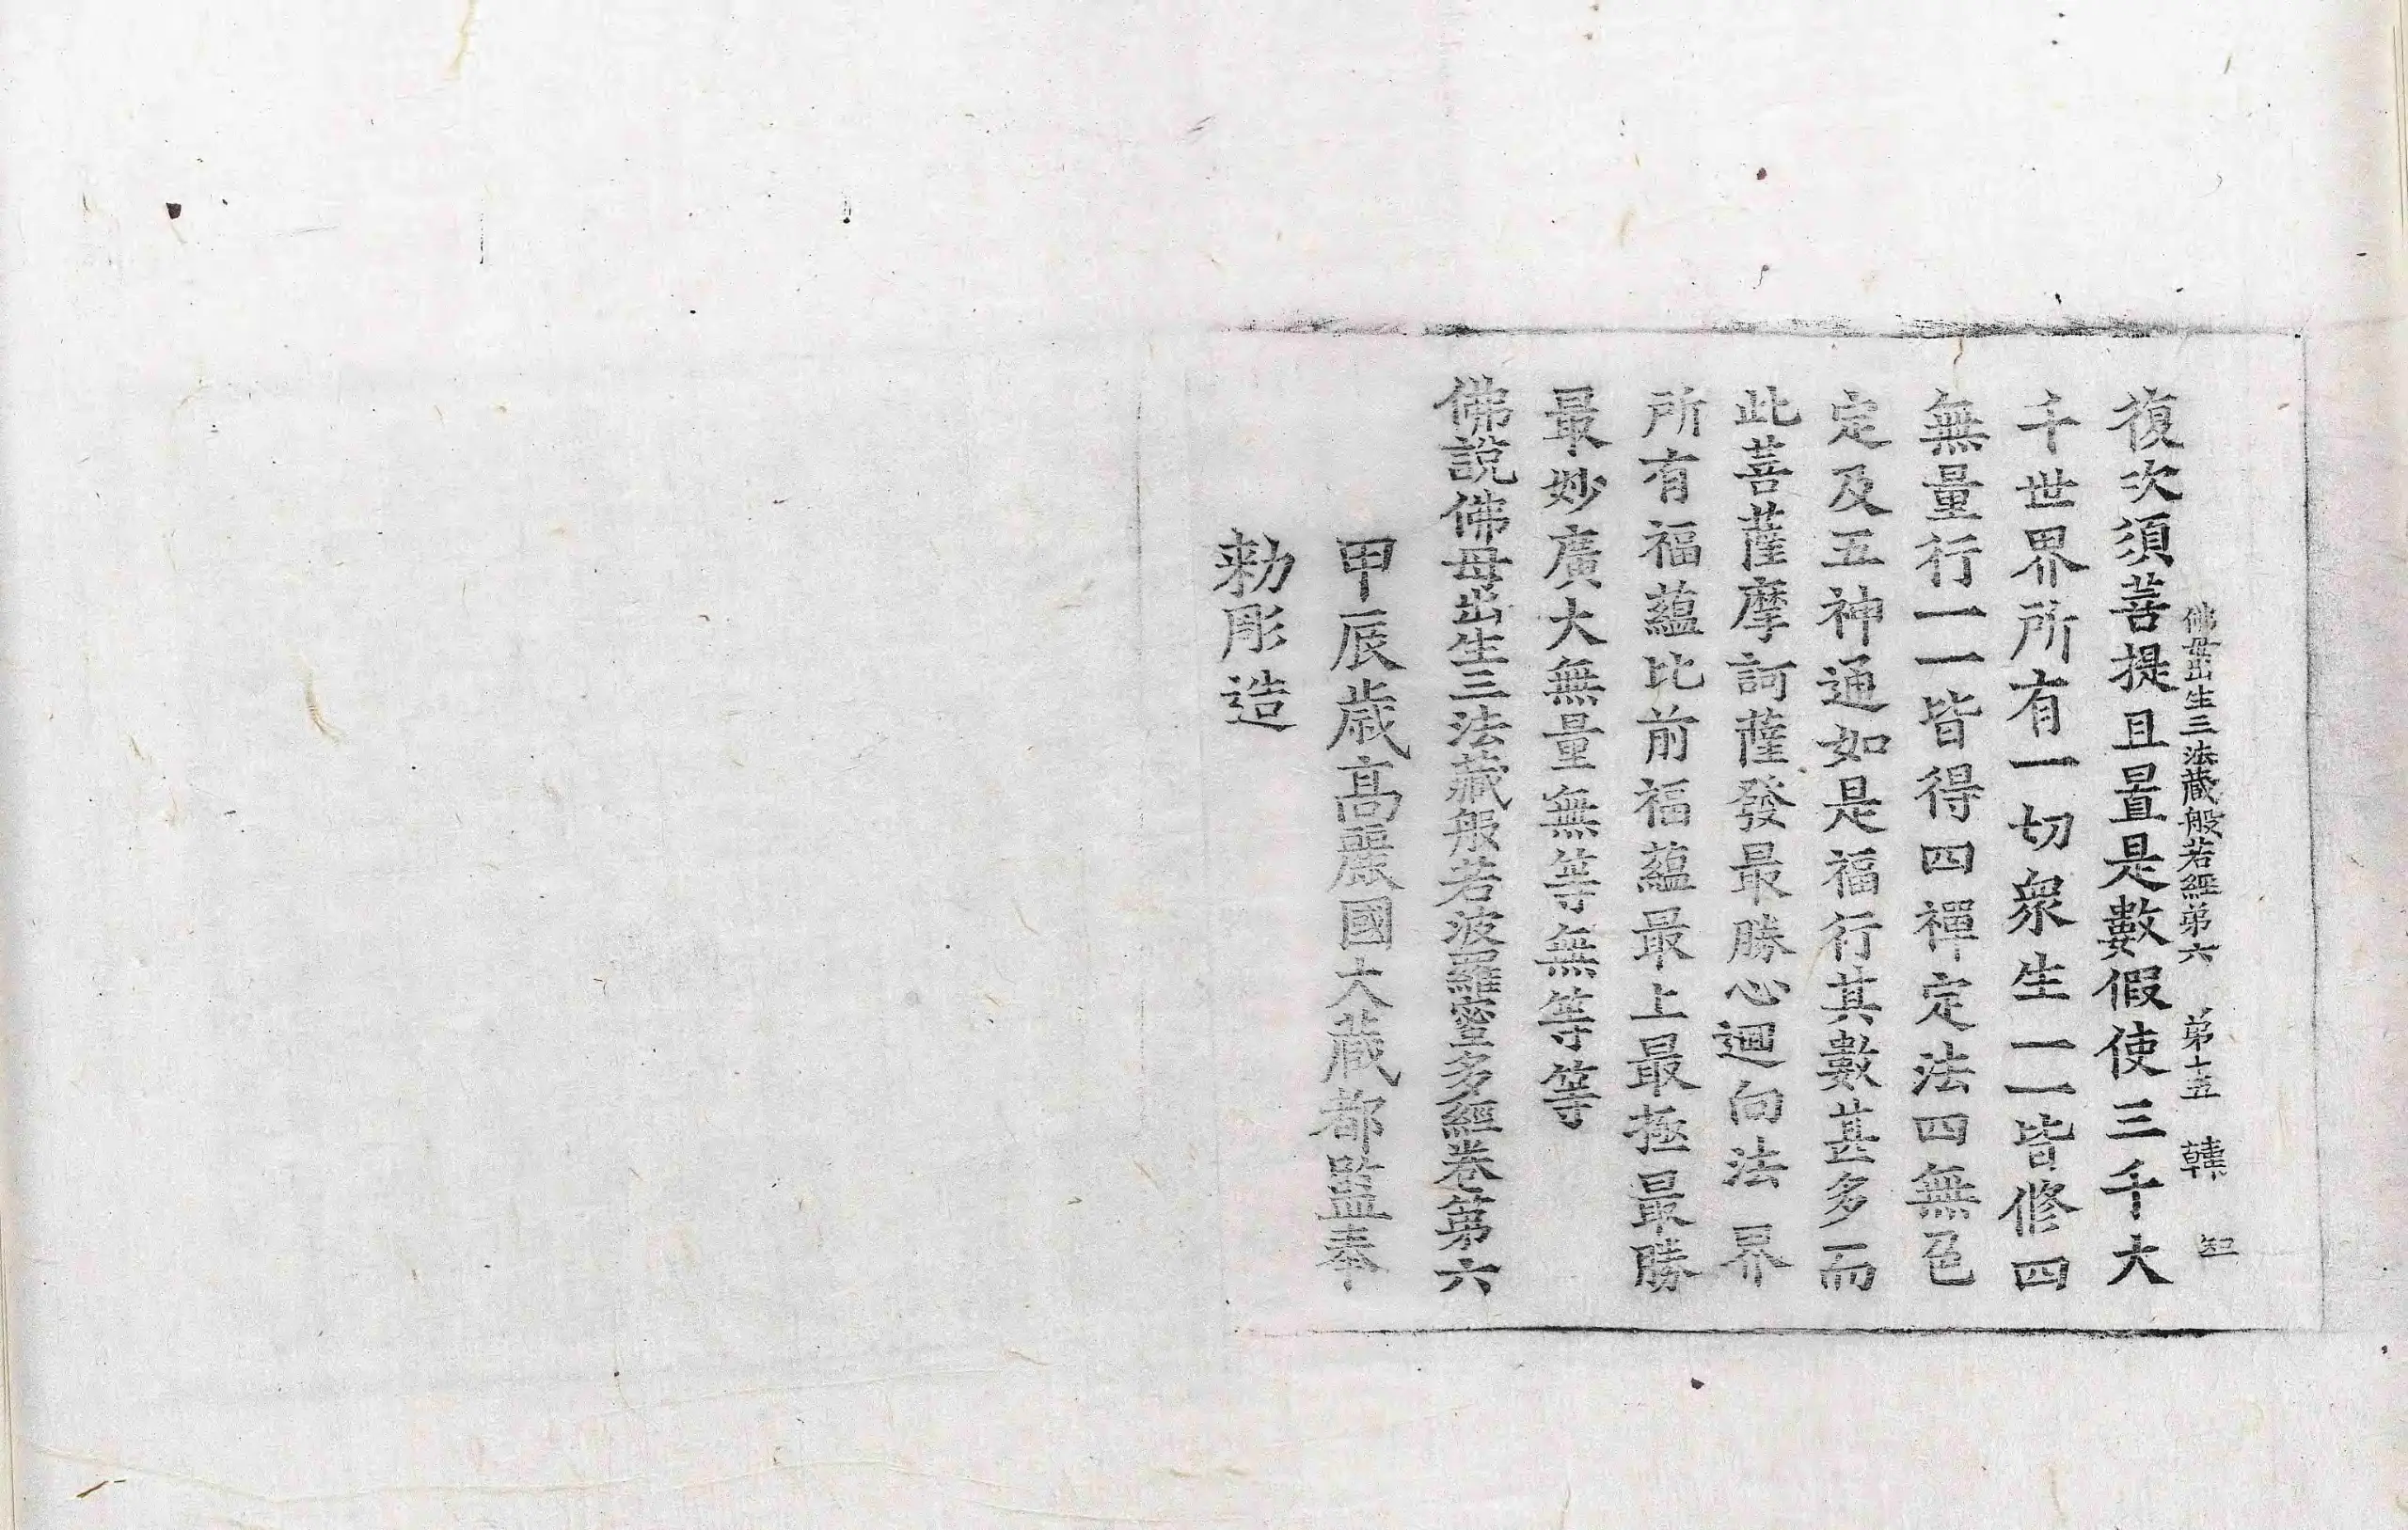 佛母出生三法藏般若經第六 第十五 韓 知
復次須菩提且置是數假使三千大
千世界所有一切衆生一一皆修四
無量行一一皆得四禪定法四無色
定及五神通如是福行其數甚多而
此菩薩摩訶薩發最勝心迴向法界
所有福蘊比前福蘊最上最極最勝
最妙廣大無量無等無等等
佛說佛母出生三法藏般若波羅蜜多經卷第六
甲辰歲高麗國大藏都監奉
勑彫造